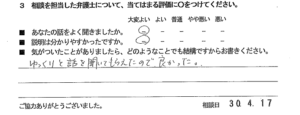 3 相談を担当した弁護士について、当てはまる評価に○をつけてください。
大変よい よい 普通 やや悪い 悪い
■ あなたの話をよく聞きましたか。 ○ － － － －
■ 説明は分かりやすかったですか。 ○ － － － －
■ 気がついたことがありましたら、どのようなことでも結構ですからお書きください。
ゆっくりと話を聞いてもらえたので良かった。
ご協力ありがとうございました。 相談日 30.4.17